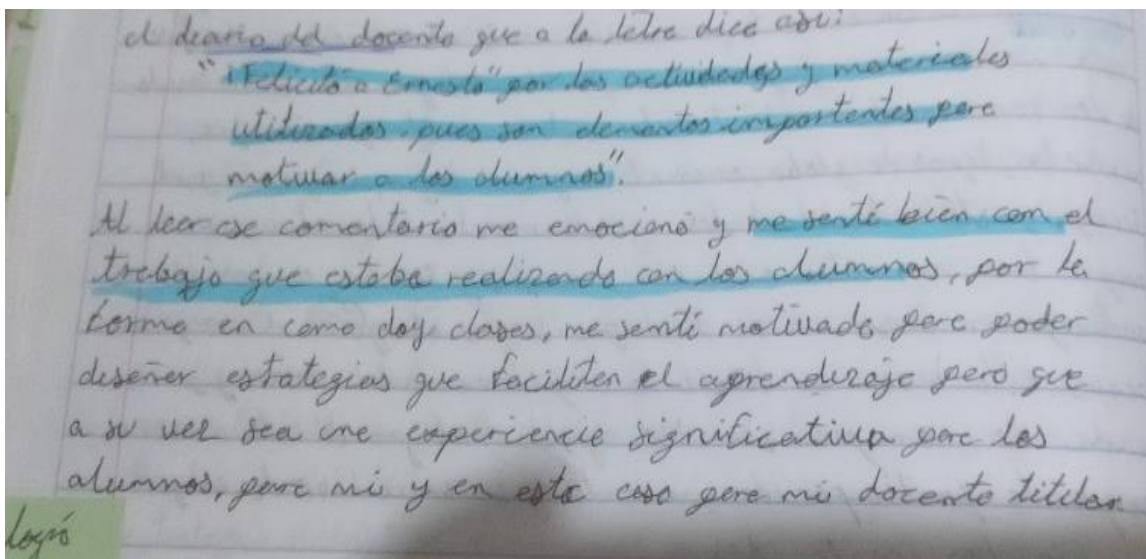 el diario del docente que a la letra dice así:
"Felicito a Ernesto" por las actividades y materiales
utilizados, pues son elementos importantes para
motivar a los alumnos".
Al leer ese comentario me emocionó y me sentí bien con el
trabajo que estaba realizando con los alumnos, por la
forma en como doy clases, me sentí motivado para poder
diseñar estrategias que faciliten el aprendizaje pero que
a su vez sea una experiencia significativa para los
alumnos, para mi y en este caso para mi docente titular
logró